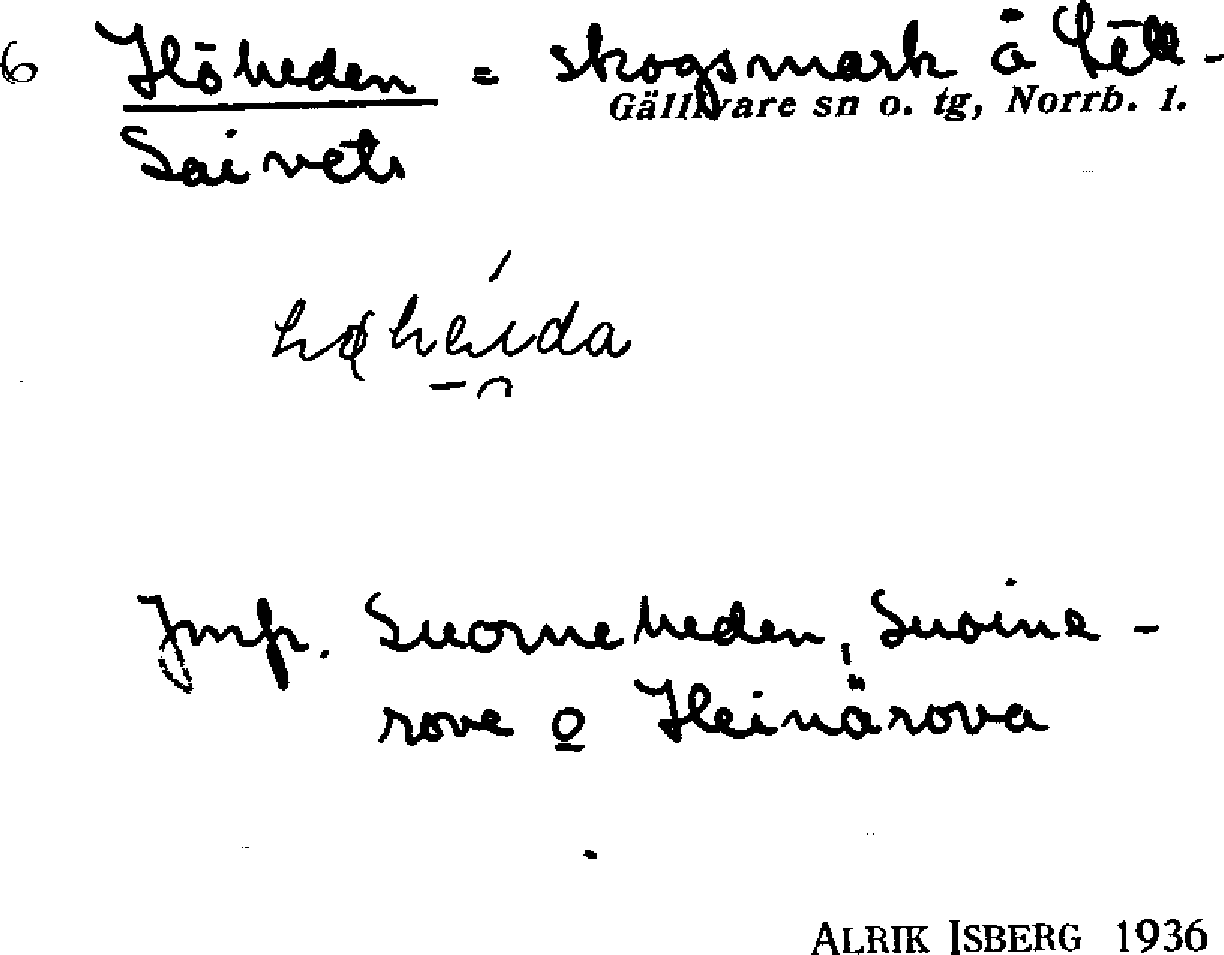 6 Höheden = skogsmark å Lill-
Gällivare sn o. tg, Norrb. l.
Saivets
Jmfr. Suorneheden, Suoine-
rove o Heinärova
ALRIK ISBERG 1936